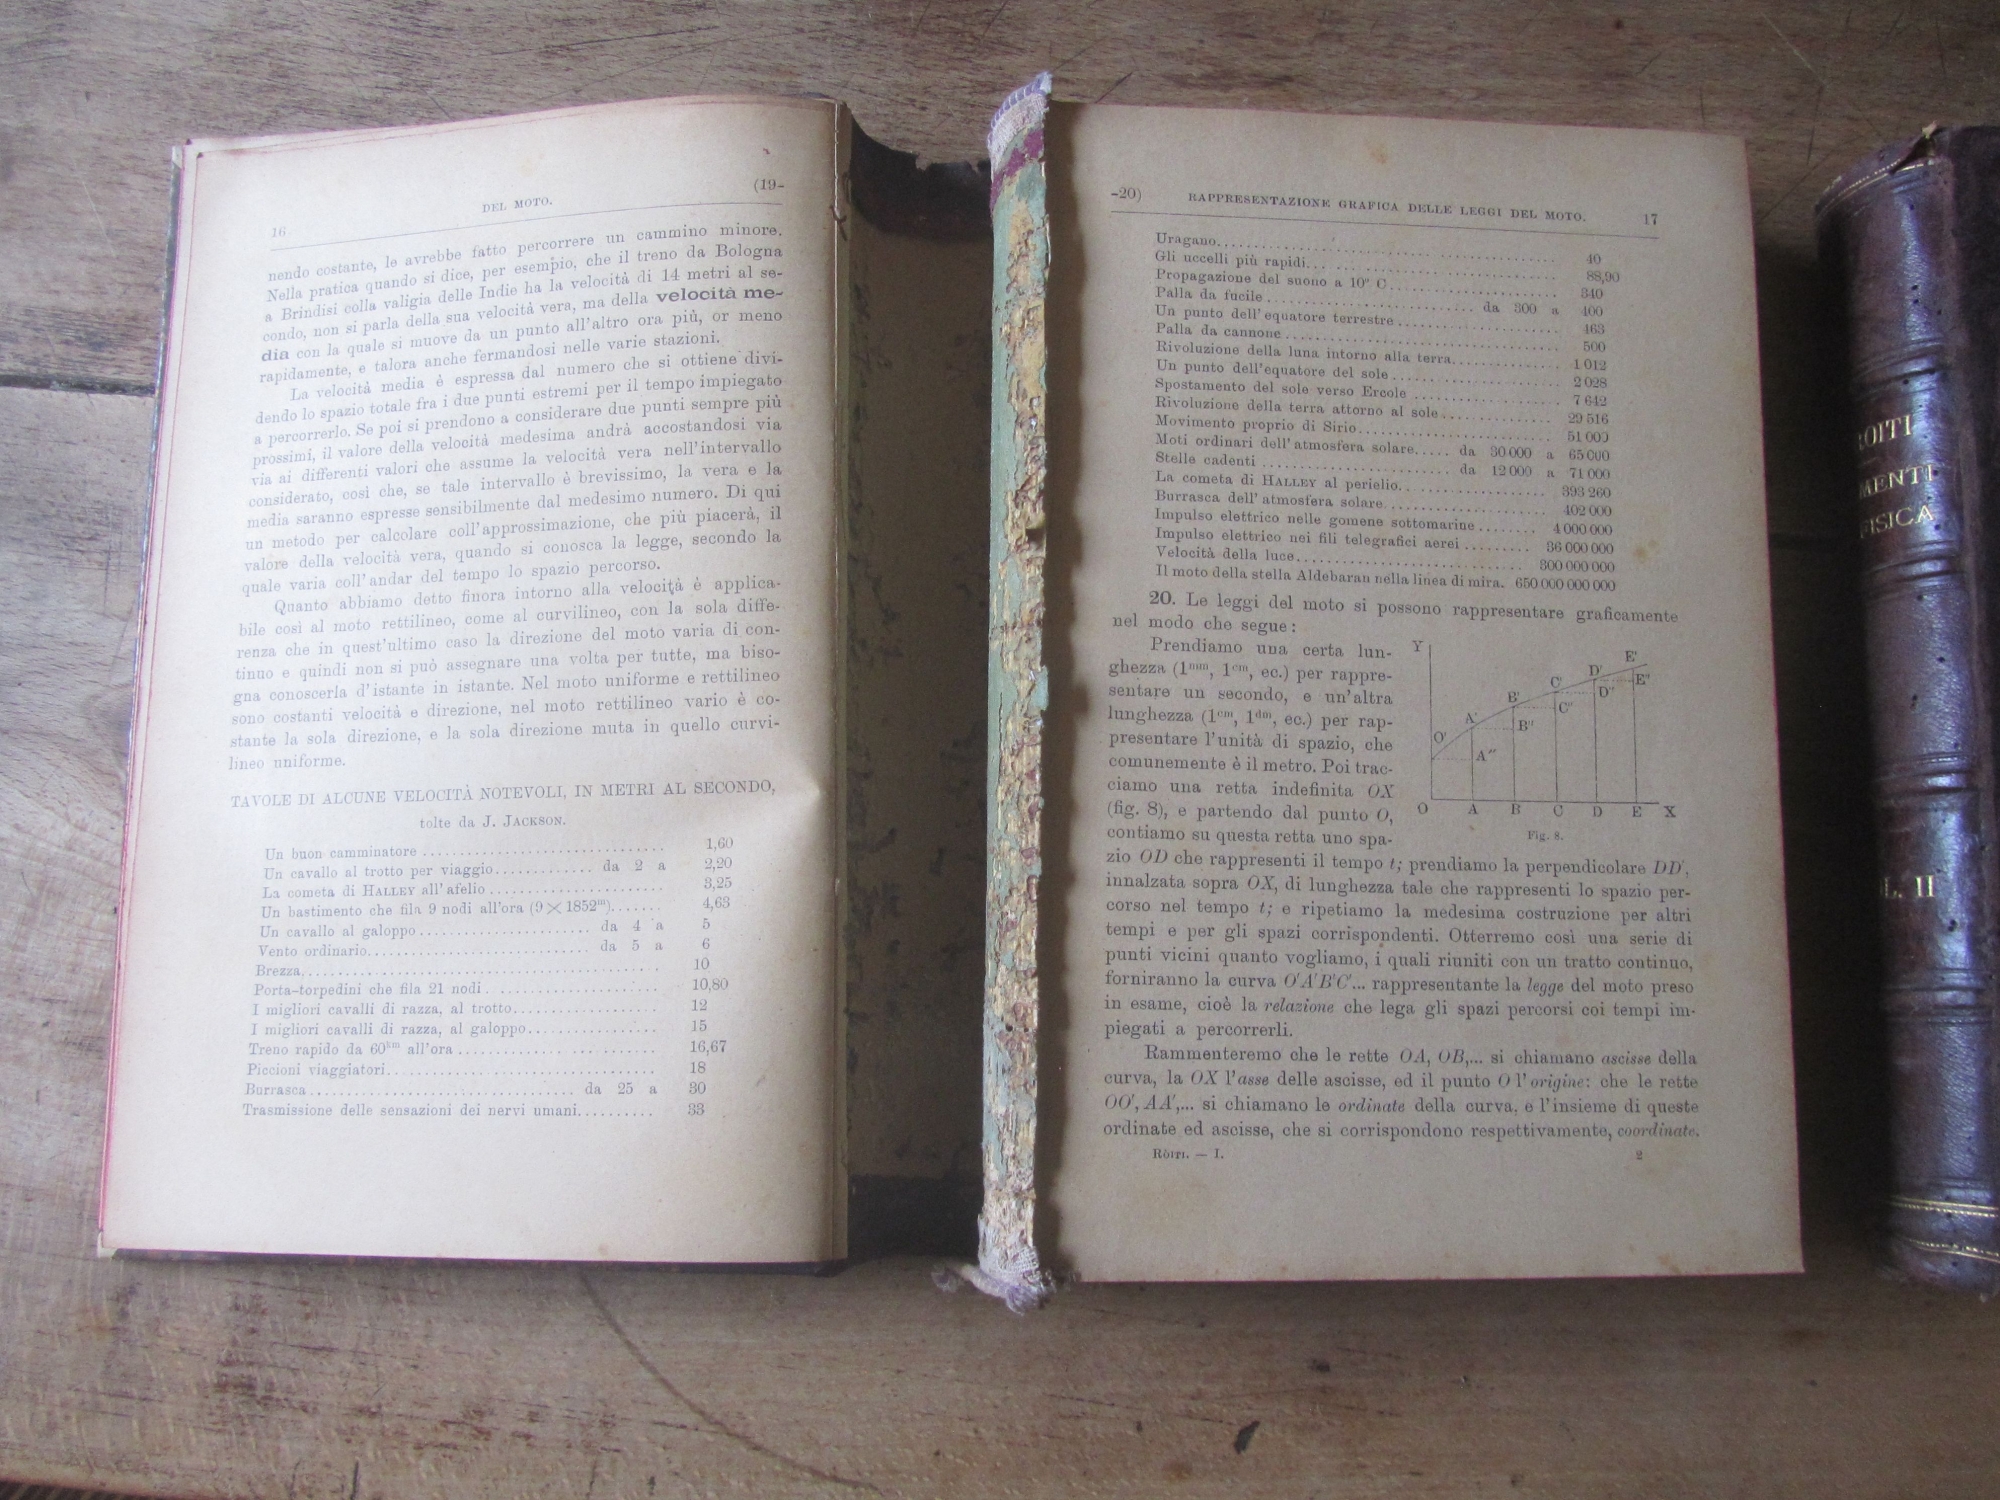 16
DEL MOTO.
(19-
nendo costante, le avrebbe fatto percorrere un cammino minore.
Nella pratica quando si dice, per esempio, che il treno da Bologna
a Brindisi colla valigia delle Indie ha la velocità di 14 metri al se-
condo, non si parla della sua velocità vera, ma della velocità me-
dia con la quale si muove da un punto all'altro ora più, or meno
rapidamente, e talora anche fermandosi nelle varie stazioni.
La velocità media è espressa dal numero che si ottiene divi-
dendo lo spazio totale fra i due punti estremi per il tempo impiegato
a percorrerlo. Se poi si prendono a considerare due punti sempre più
prossimi, il valore della velocità medesima andrà accostandosi via
via ai differenti valori che assume la velocità vera nell'intervallo
considerato, così che, se tale intervallo è brevissimo, la vera e la
media saranno espresse sensibilmente dal medesimo numero. Di qui
un metodo per calcolare coll'approssimazione, che più piacerà, il
valore della velocità vera, quando si conosca la legge, secondo la
quale varia coll'andar del tempo lo spazio percorso.
Quanto abbiamo detto finora intorno alla velocità è applica-
bile così al moto rettilineo, come al curvilineo, con la sola diffe-
renza che in quest'ultimo caso la direzione del moto varia di con-
tinuo e quindi non si può assegnare una volta per tutte, ma biso-
gna conoscerla d'istante in istante. Nel moto uniforme e rettilineo
sono costanti velocità e direzione, nel moto rettilineo vario è co-
stante la sola direzione, e la sola direzione muta in quello curvi-
lineo uniforme.
TAVOLE DI ALCUNE VELOCITÀ NOTEVOLI, IN METRI AL SECONDO,
tolte da J. JACKSON.
Un buon camminatore .......... 1,60
Un cavallo al trotto per viaggio.......... da 2 a 2,20
La cometa di HALLEY all'afelio .......... 3,25
Un bastimento che fila 9 nodi all'ora (9 × 1852ᵐ)....... 4,63
Un cavallo al galoppo.......... da 4 a 5
Vento ordinario.......... da 5 a 6
Brezza.......... 10
Porta-torpedini che fila 21 nodi .......... 10,80
I migliori cavalli di razza, al trotto.......... 12
I migliori cavalli di razza, al galoppo.......... 15
Treno rapido da 60ᵏᵐ all'ora .......... 16,67
Piccioni viaggiatori.......... 18
Burrasca.......... da 25 a 30
Trasmissione delle sensazioni dei nervi umani.......... 33
-20)
RAPPRESENTAZIONE GRAFICA DELLE LEGGI DEL MOTO.
17
Uragano.......... 40
Gli uccelli più rapidi.......... 88,90
Propagazione del suono a 10° C.......... 340
Palla da fucile .......... da 300 a 400
Un punto dell'equatore terrestre.......... 463
Palla da cannone.......... 500
Rivoluzione della luna intorno alla terra.......... 1 012
Un punto dell'equatore del sole .......... 2 028
Spostamento del sole verso Ercole .......... 7 642
Rivoluzione della terra attorno al sole.......... 29 516
Movimento proprio di Sirio.......... 51 000
Moti ordinari dell'atmosfera solare..... da 30 000 a 65 000
Stelle cadenti .......... da 12 000 a 71 000
La cometa di HALLEY al perielio.......... 393 260
Burrasca dell'atmosfera solare.......... 402 000
Impulso elettrico nelle gomene sottomarine ........ 4 000 000
Impulso elettrico nei fili telegrafici aerei ......... 36 000 000
Velocità della luce.......... 300 000 000
Il moto della stella Aldebaran nella linea di mira. 650 000 000 000
20. Le leggi del moto si possono rappresentare graficamente
nel modo che segue:
Prendiamo una certa lun-
ghezza (1ᵐᵐ, 1ᶜᵐ, ec.) per rappre-
sentare un secondo, e un'altra
lunghezza (1ᶜᵐ, 1ᵈᵐ, ec.) per rap-
presentare l'unità di spazio, che
comunemente è il metro. Poi trac-
ciamo una retta indefinita OX
(fig. 8), e partendo dal punto O,
contiamo su questa retta uno spa-
Y
O' A' B' C' D' E'
A'' B'' C'' D'' E''
O A B C D E X
Fig. 8.
zio OD che rappresenti il tempo t; prendiamo la perpendicolare DD',
innalzata sopra OX, di lunghezza tale che rappresenti lo spazio per-
corso nel tempo t; e ripetiamo la medesima costruzione per altri
tempi e per gli spazi corrispondenti. Otterremo così una serie di
punti vicini quanto vogliamo, i quali riuniti con un tratto continuo,
forniranno la curva O'A'B'C'... rappresentante la legge del moto preso
in esame, cioè la relazione che lega gli spazi percorsi coi tempi im-
piegati a percorrerli.
Rammenteremo che le rette OA, OB,... si chiamano ascisse della
curva, la OX l'asse delle ascisse, ed il punto O l'origine: che le rette
OO', AA',... si chiamano le ordinate della curva, e l'insieme di queste
ordinate ed ascisse, che si corrispondono respettivamente, coordinate.
RÒITI. — I.
2
ROITI
MENTI
FISICA
L. II